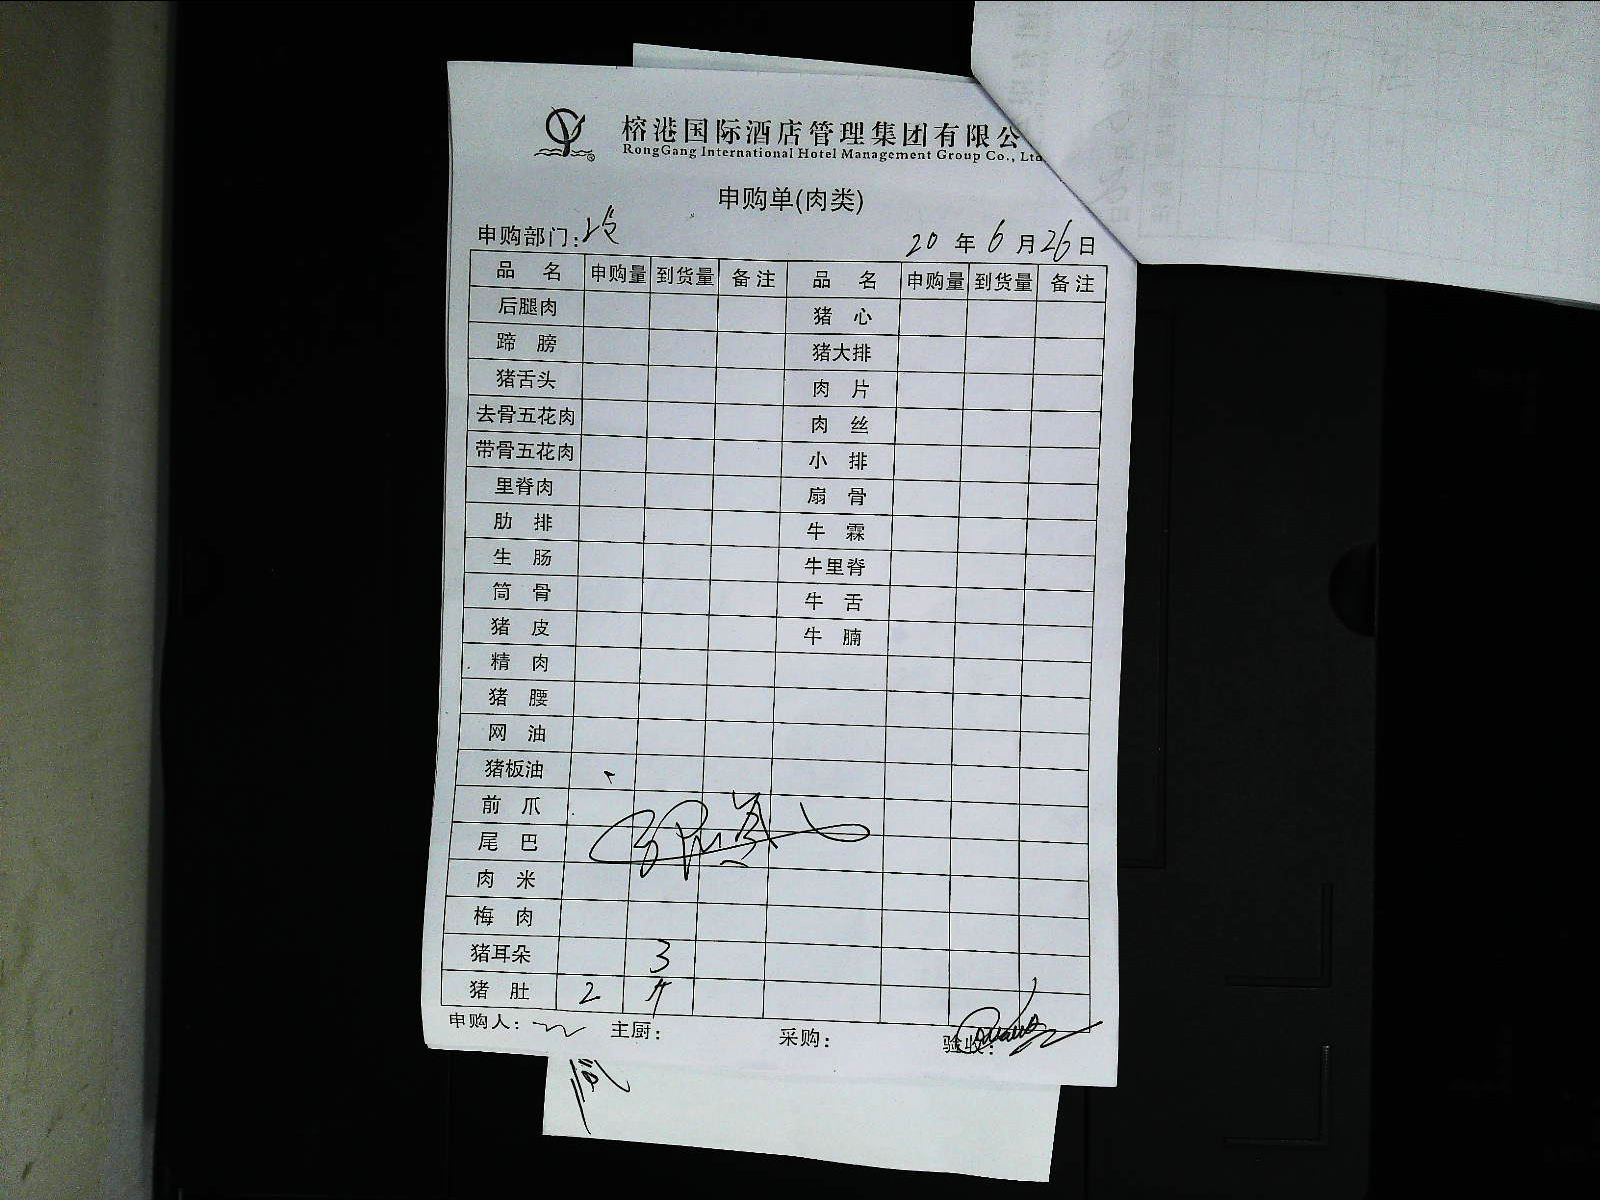 榕港国际酒店管理集团有限公
RongGang International Hotel Management Group Co., Ltd
申购单(肉类)
申购部门: 20年6月26日
品名 申购量 到货量 备注 品名 申购量 到货量 备注
后腿肉 猪心
蹄膀 猪大排
猪舌头 肉片
去骨五花肉 肉丝
带骨五花肉 小排
里脊肉 扇骨
肋排 牛霖
生肠 牛里脊
筒骨 牛舌
猪皮 牛腩
精肉
猪腰
网油
猪板油
前爪
尾巴
肉米
梅肉
猪耳朵 3
猪肚 2
申购人: 主厨: 采购: 验收: